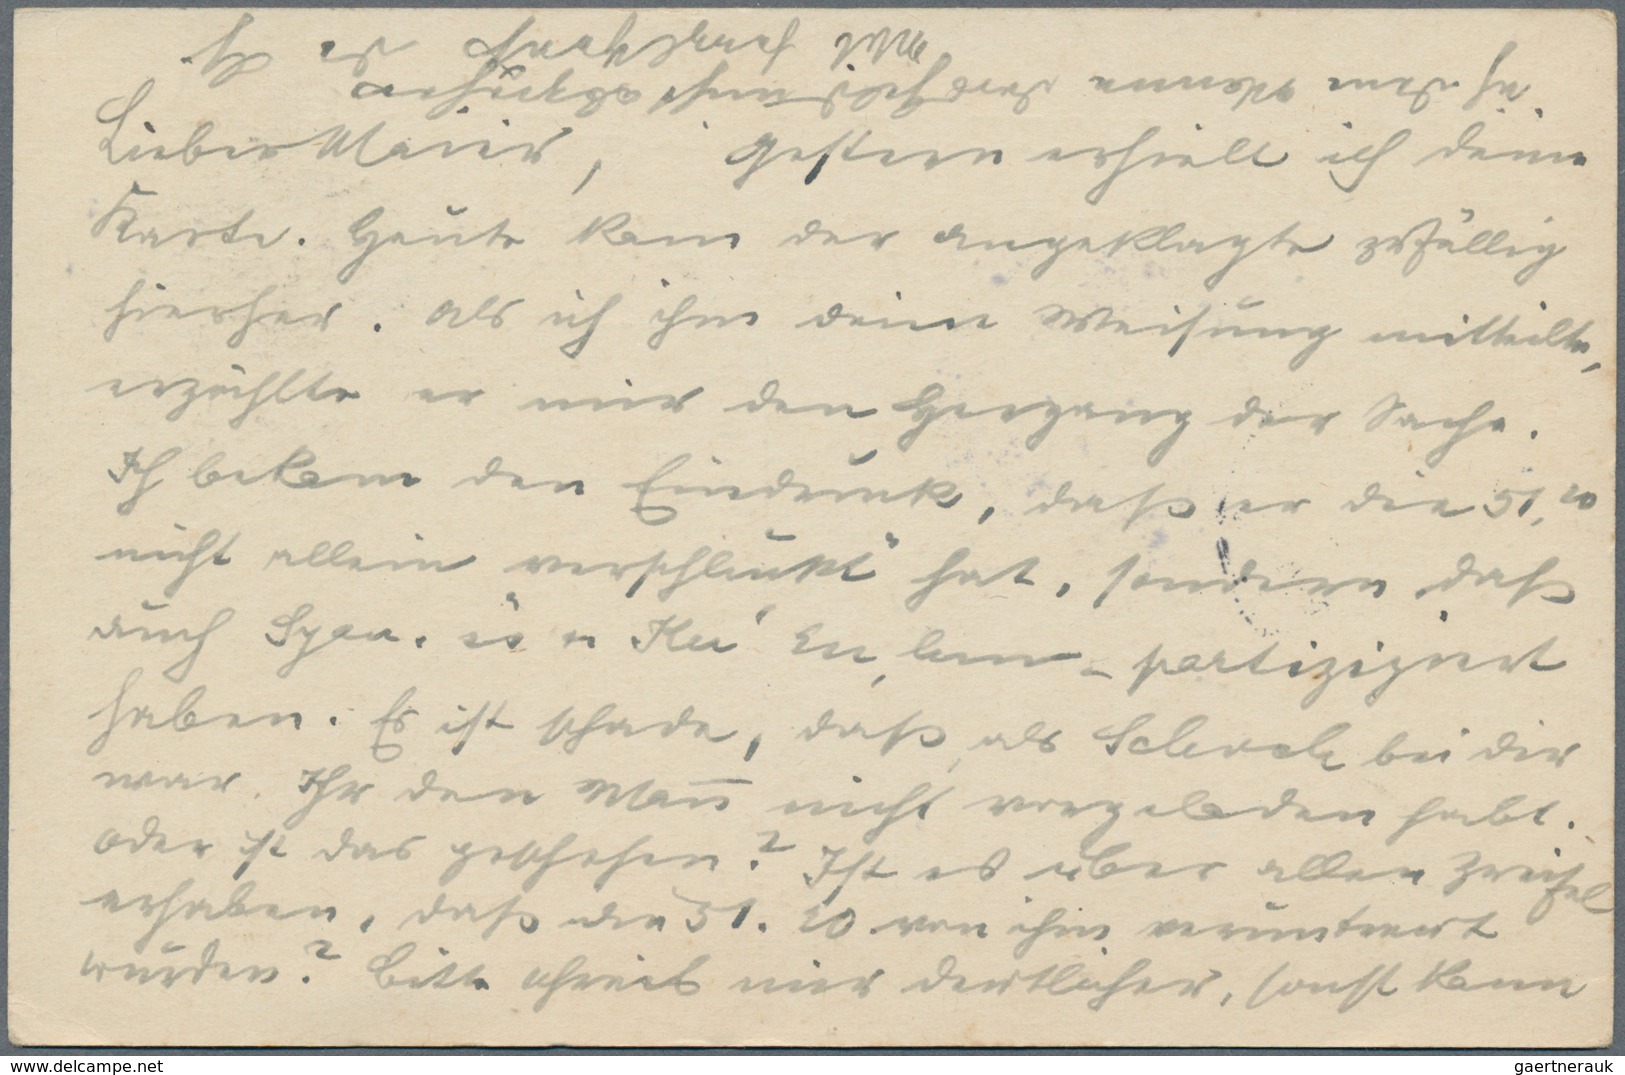 Lieber Maier, Gestern erhielt ich deine
Karte. Heute kam der angeklagte zufällig
hierher. Als ich ihm deine Weisung mitteilte,
erzählte er mir den Hergang der Sache.
Ich bekam den Eindruck, daß er die 51,20
nicht allein „verschluckt“ hat, sondern daß
auch partizipiert
haben. Es ist schade, daß, als bei dir
war, Ihr den Mann nicht vorgeladen habt.
Oder ist das geschehen? Ist es über allen Zweifel
erhaben, daß die 51.20 von ihm veruntreut
wurden? Bitte schreib mir deutlicher, sonst kann
ich dem Manne das Geld nicht
Mit
gaertnerauk